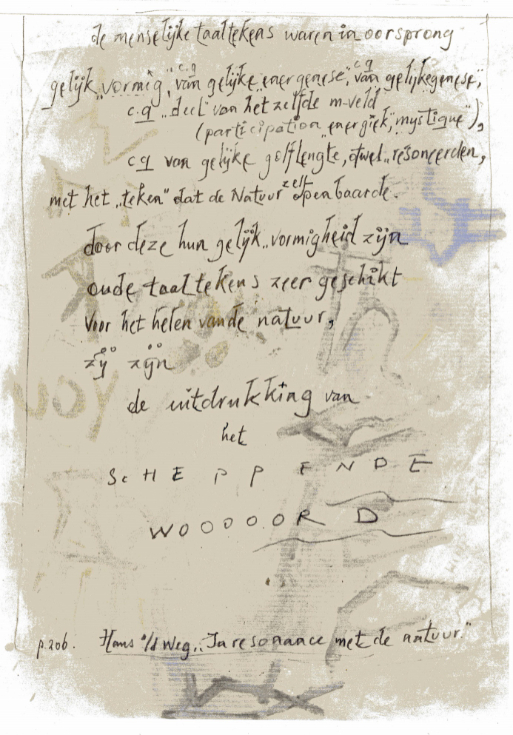 de menselijke taaltekens waren in oorsprong
gelijk „vormig”, c.q. van gelijke „energenese”, c.q. van gelijke genese”,
c.q. „deel” van het zelfde m-veld
(participation „energiek”, mystique”),
c.q van gelijke golflengte, otwel „resoneerden,
met het „teken” dat de Natuur zelf openbaarde.
door deze hun gelijk„vormigheid zijn
oude taaltekens zeer geschikt
voor het helen van de natuur,
zij zijn
de uitdrukking van
het
ScHEPPENDE
WOOOOORD
p.206. Hans v/d Weg, „In resonance met de natuur.”